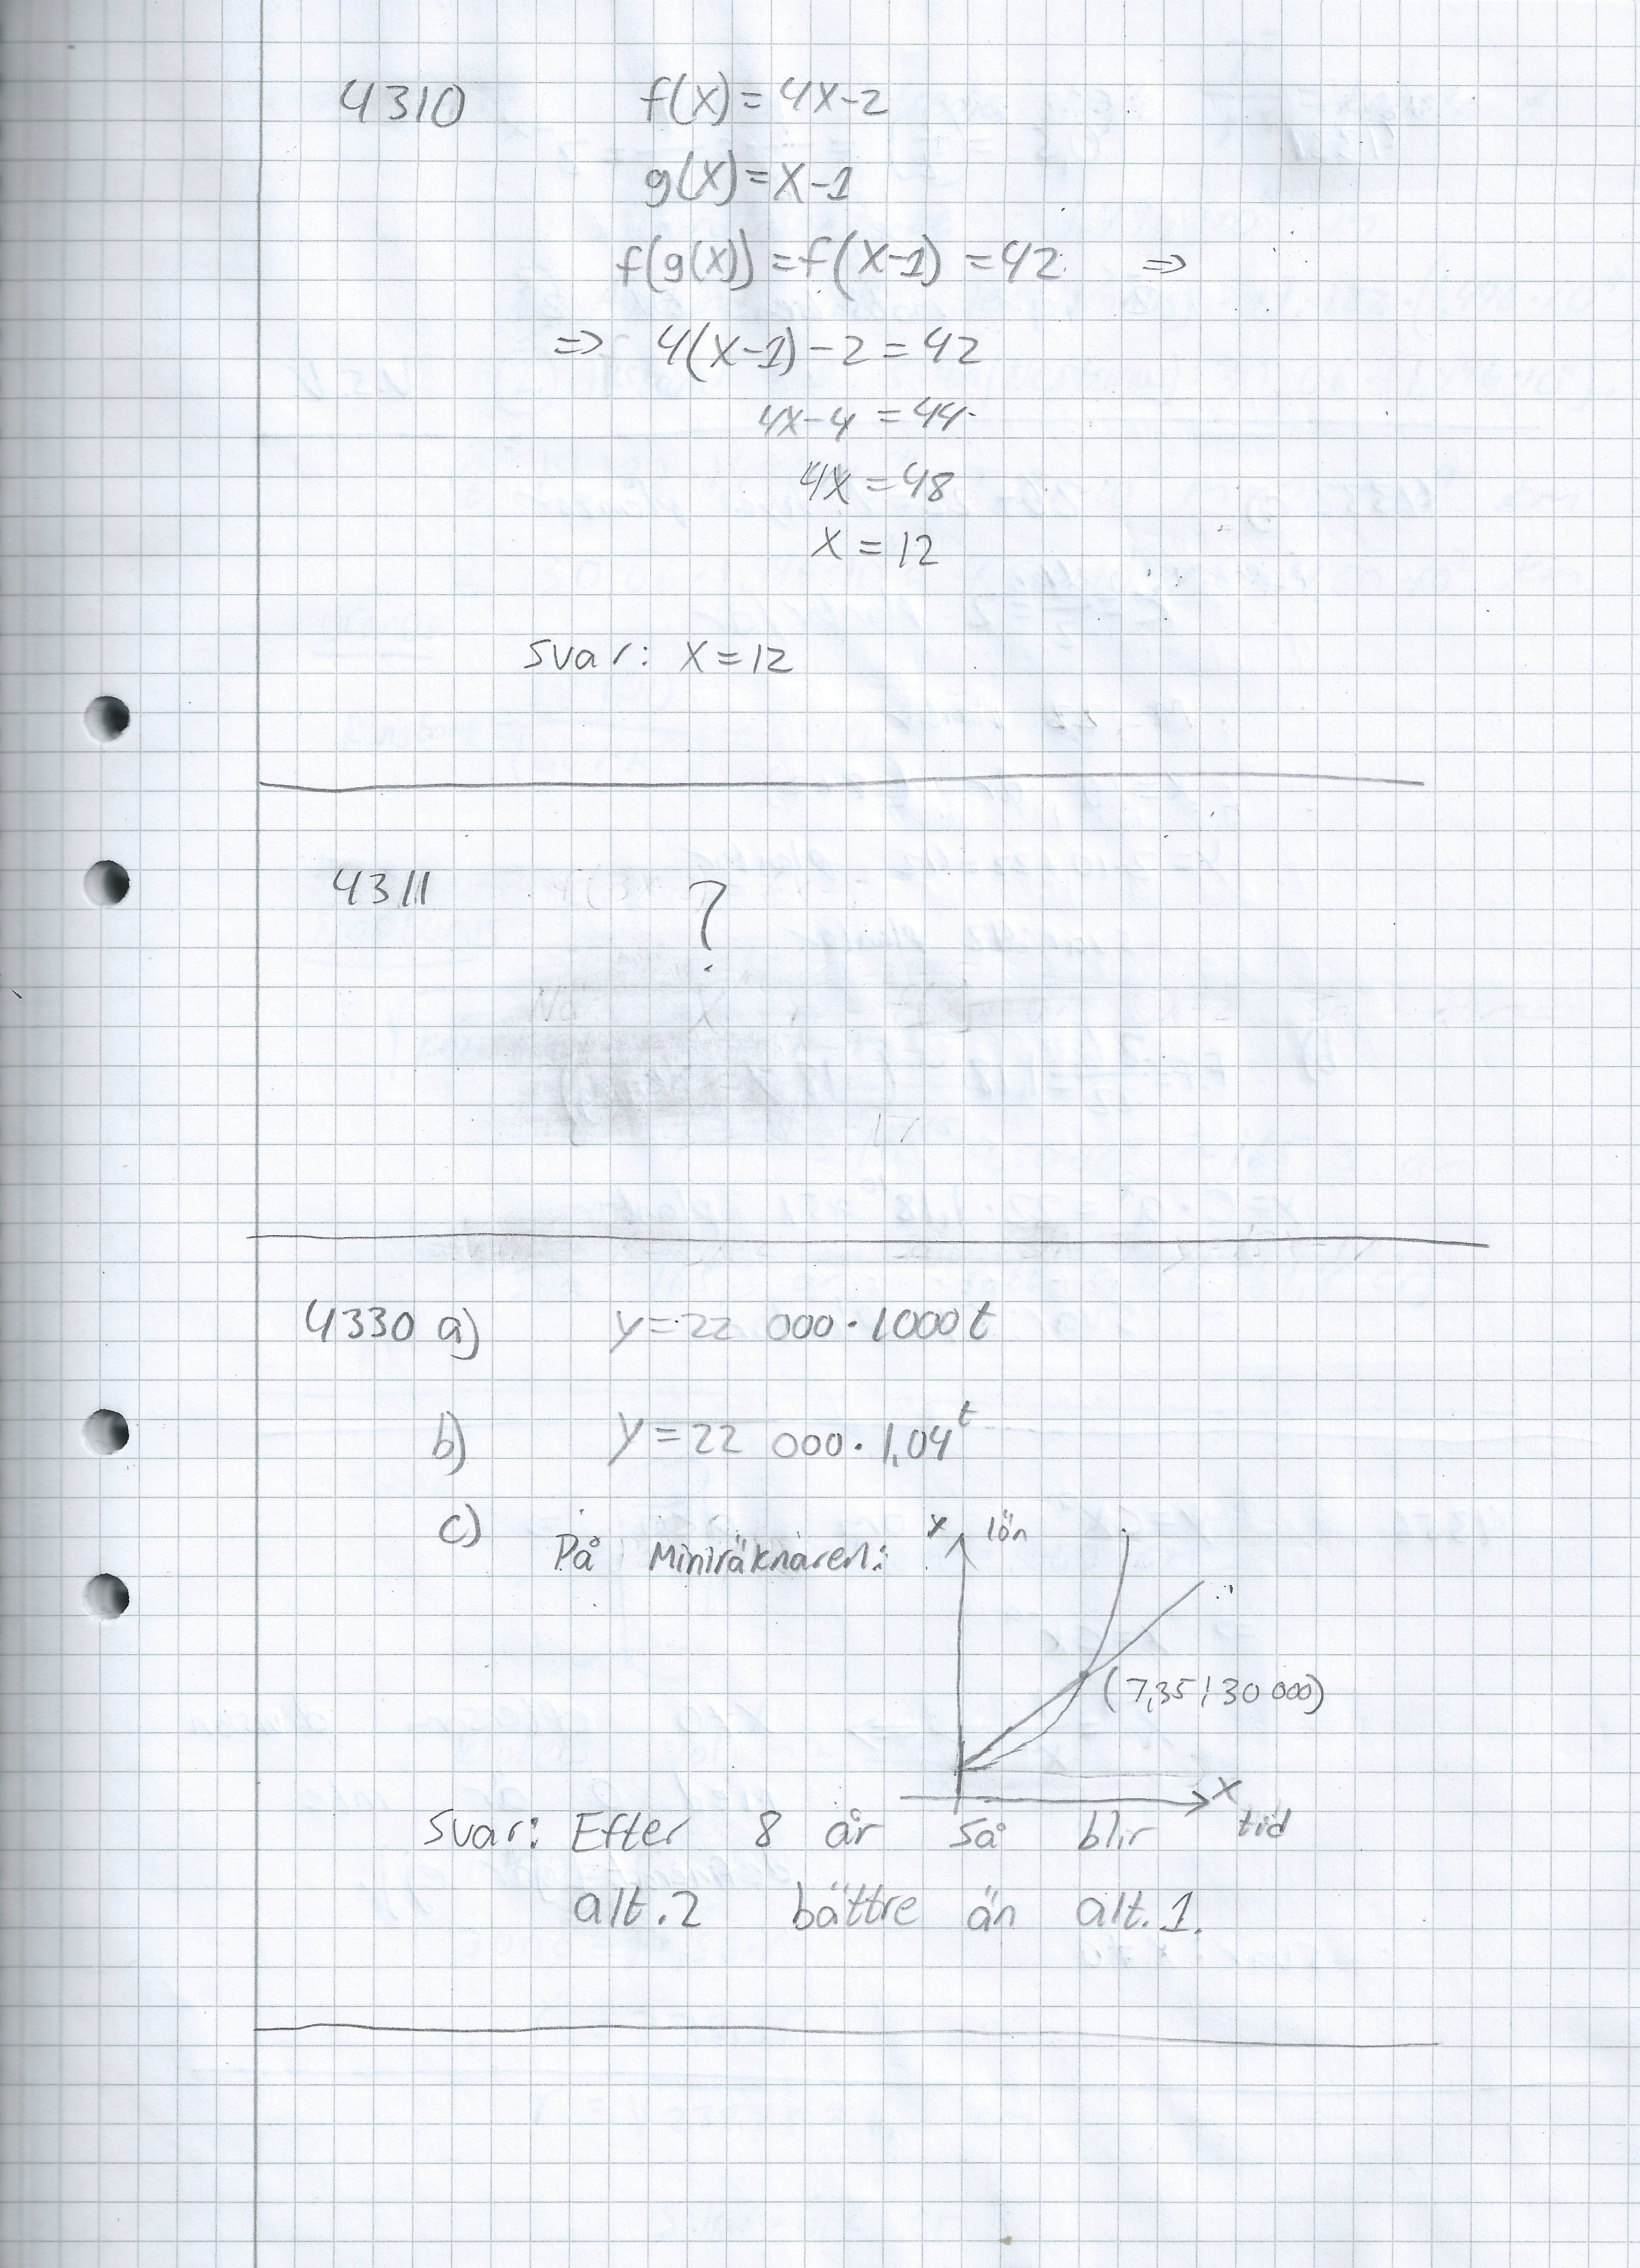 4310 f(x) = 4x-2
g(x) = x-1
f(g(x)) = f(x-1) = 42 ⇒
⇒ 4(x-1) - 2 = 42
4x-4 = 44
4x = 48
x = 12
svar: x = 12
4311 ?
4330 a) y = 22 000 · 1000t
b) y = 22 000 · 1,04^t
c) På Miniräknaren:
y lön
(7,35 ; 30 000)
x
tid
Svar: Efter 8 år så blir
alt. 2 bättre än alt. 1.